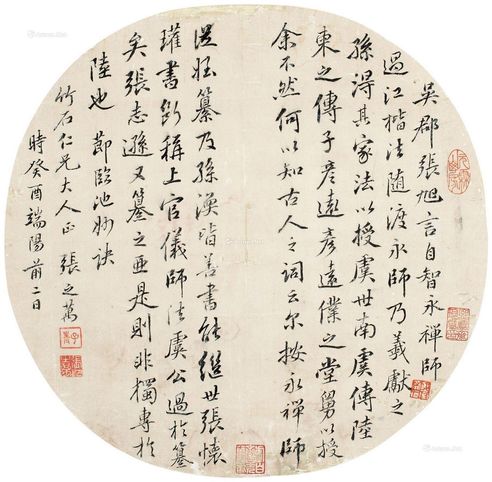 吳郡張旭言自智永禪師
過江楷法随渡永師乃羲獻之
孫得其家法以授虞世南虞傳陸
柬之傳子彦遠彦遠僕之堂舅以授
余不然何以知古人之詞云尔按永禪師
從姪纂及孫漢皆善書能继世張懷
瓘書斷稱上官儀師法虞公過於纂
矣張志遜又纂之亞是則非獨專於
陸也 節臨池妙訣
竹石仁兄大人正 張之萬
時癸酉端陽前二日